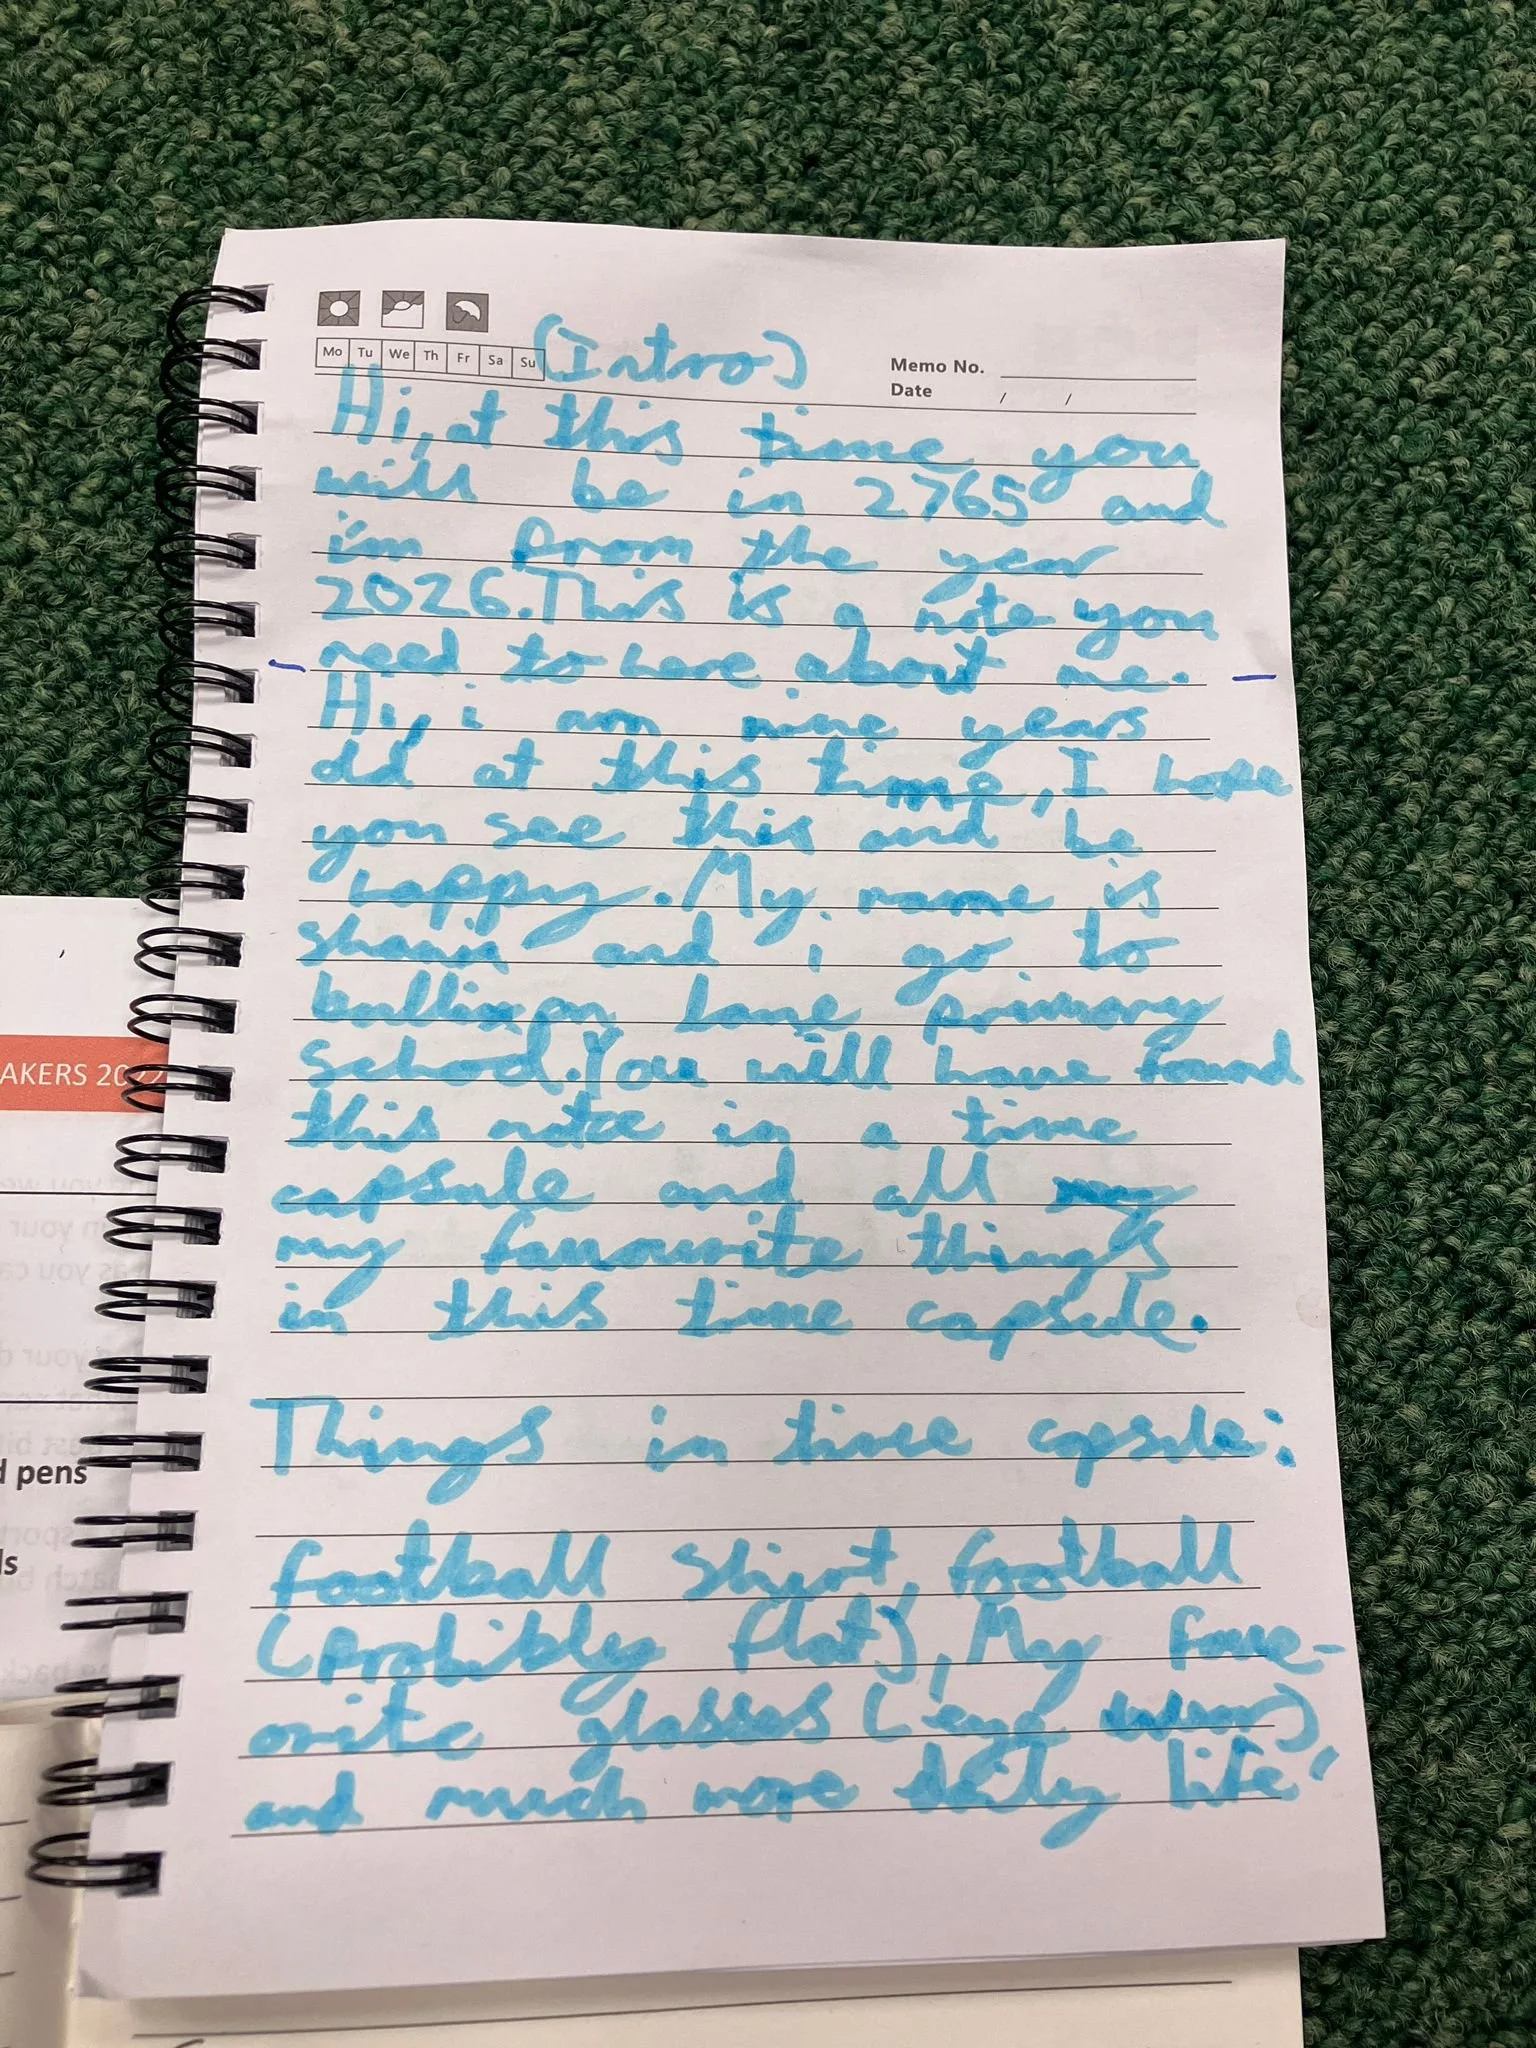 Mo Tu We Th Fr Sa Su
(Intro)
Memo No.
Date / /
Hi, at this time you
will be in 2765 and
i'm from the year
2026. This is a note you
need to have about me.
Hi, i am nine years
old at this time, I hope
you see this and be
happy. My name is
and i go to
lane primary
school. You will have found
this note in a time
capsule and all
my favourite things
in this time capsule.
Things in time capsule:
football shirt, football
(Probibly flat), My fave-
orite glasses (eye
and much more daily life
AKERS 2022
d pens
ls